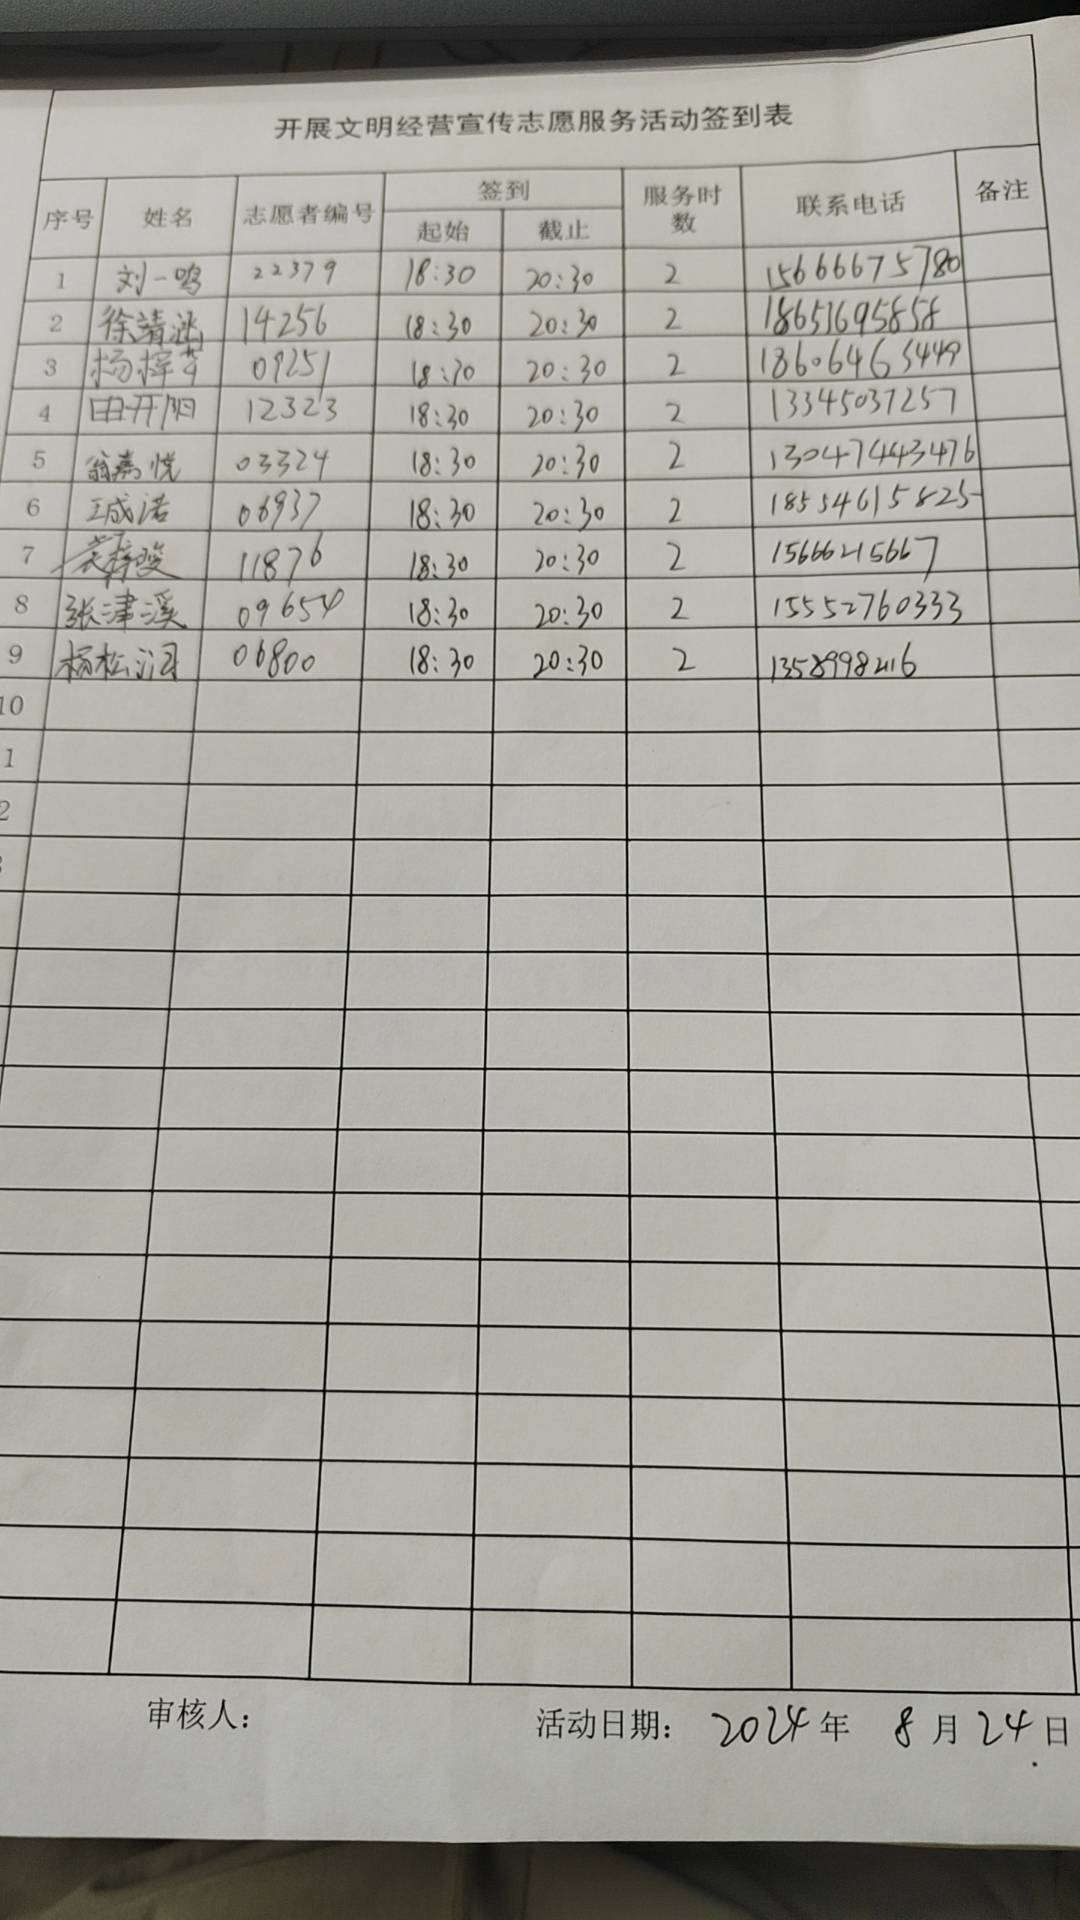 开展文明经营宣传志愿服务活动签到表
序号 姓名 志愿者编号 签到 服务时数 联系电话 备注
起始 截止
1 刘一鸣 22379 18:30 20:30 2 15666675780
2 徐靖涵 14256 18:30 20:30 2 18651695858
3 杨梓 09251 18:30 20:30 2 18606463449
4 由开阳 12323 18:30 20:30 2 13345037257
5 翁嘉悦 03324 18:30 20:30 2 130474443476
6 王成诺 06937 18:30 20:30 2 18554615825
7 11876 18:30 20:30 2 15666215667
8 张津溪 09654 18:30 20:30 2 15552760333
9 杨松润 06800 18:30 20:30 2 13589982116
10
1
2
审核人： 活动日期： 2024年 8月24日